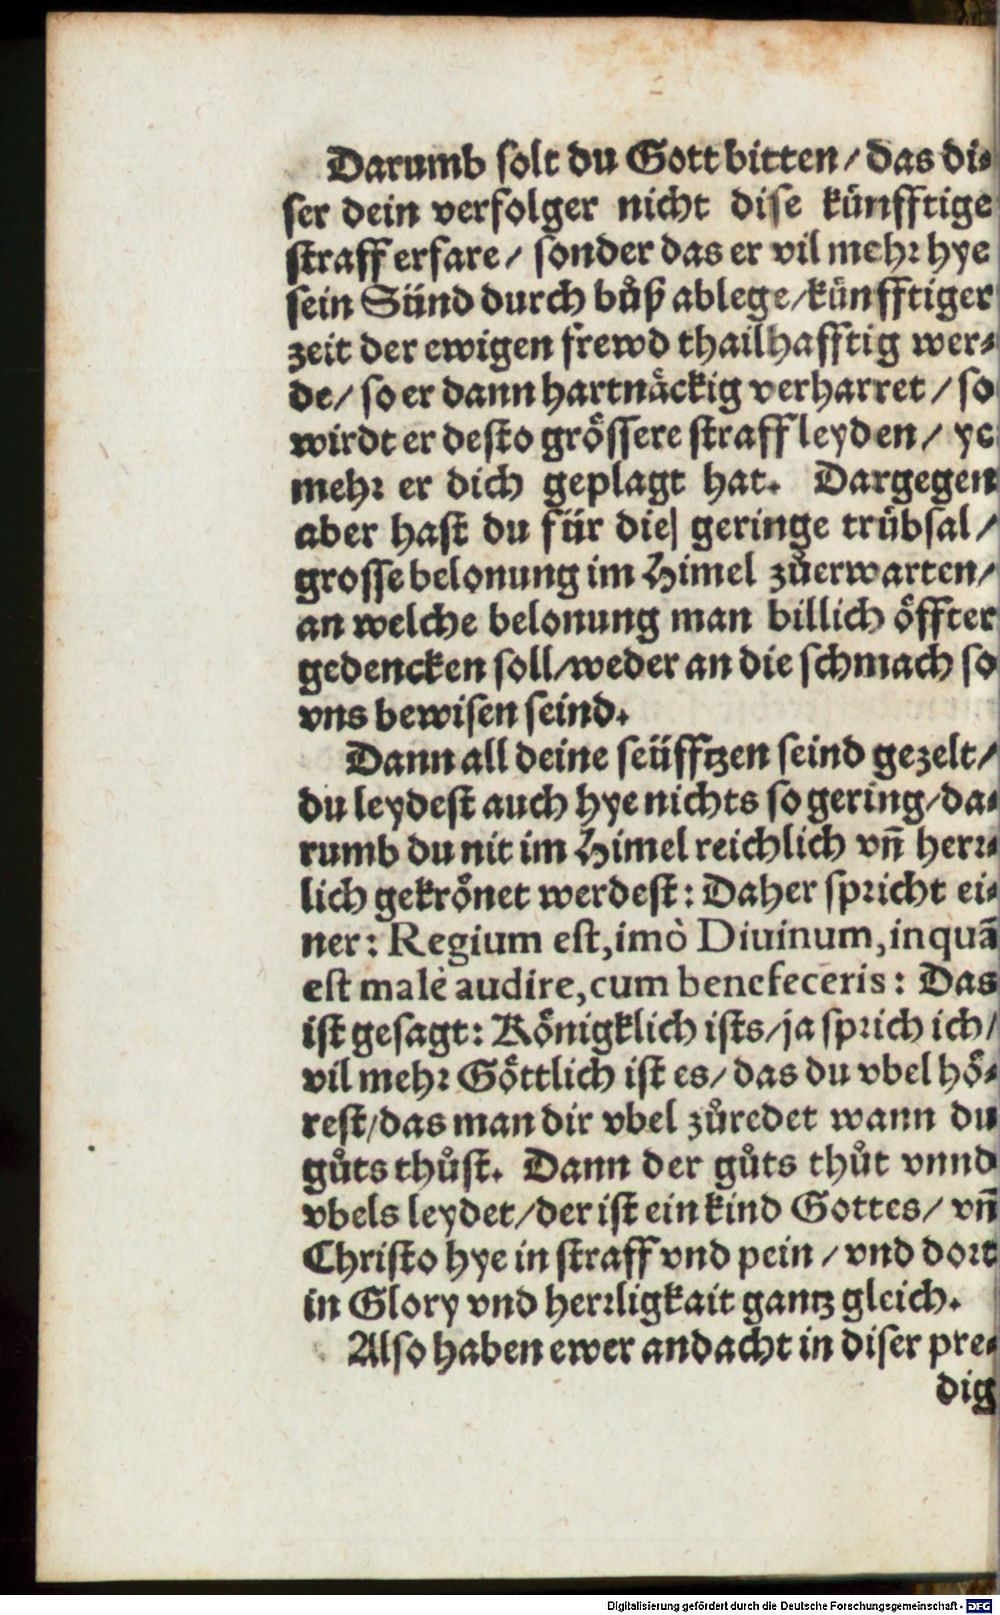 Darumb solt du Gott bitten/ das di⸗
ser dein verfolger nicht dise künfftige
straff erfare/ sonder das er vil mehr hye
sein Sünd durch bůß ablege/künfftiger
zeit der ewigen frewd thailhafftig wer⸗
de/ so er dann hartnäckig verharret/ so
wirdt er desto grössere straff leyden/ ye
mehr er dich geplagt hat. Dargegen
aber hast du für dieſ geringe trübsal/
grosse belonung im Himel zůerwarten/
an welche belonung man billich öffter
gedencken soll/weder an die schmach so
vns bewisen seind.
Dann all deine seüfftzen seind gezelt/
du leydest auch hye nichts so gering/da⸗
rumb du nit im Himel reichlich vñ herr⸗
lich gekrönet werdest: Daher spricht ei⸗
ner: Regium est, imò Diuinum, inquã
est malè audire, cum benefeceris: Das
ist gesagt: Königklich ists/ja sprich ich/
vil mehr Göttlich ist es/ das du vbel hö⸗
rest/das man dir vbel zůredet wann du
gůts thůst. Dann der gůts thůt vnnd
vbels leydet/der ist ein kind Gottes/ vñ
Christo hye in straff vnd pein/ vnd dort
in Glory vnd herrligkait gantz gleich.
Also haben ewer andacht in diser pre⸗
dig
Digitalisierung gefördert durch die Deutsche Forschungsgemeinschaft - DFG